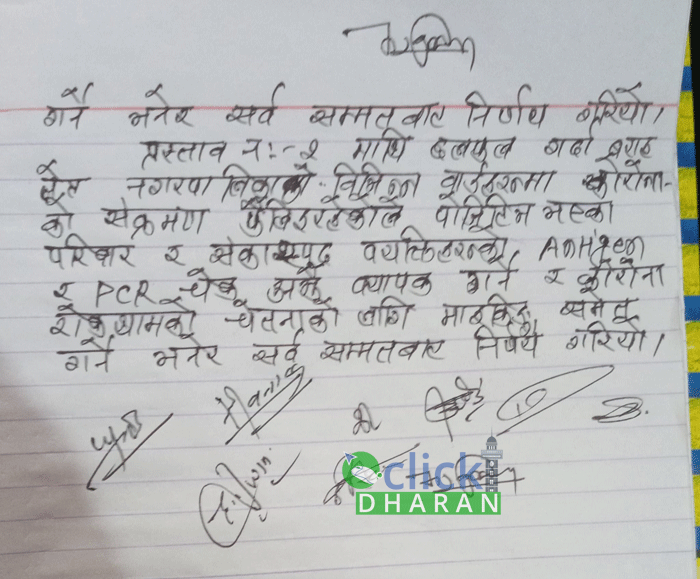 गर्ने भनेर सर्व सम्मतबाट निर्णय गरियो।
प्रस्ताव नं:- २ माथि छलफल गर्दा बराह
क्षेत्र नगरपालिकाको विभिन्न वार्डहरुमा कोरोना-
को संक्रमण फैलिइरहेकोले पोजिटिभ भएका
परिवार र संकास्पद व्यक्तिहरुको Antigen
र PCR चेक अझै व्यापक गर्ने र कोरोना
रोकथामको चेतनाको लागि माइकिङ्ग समेत
गर्ने भनेर सर्व सम्मतबाट निर्णय गरियो।
click
DHARAN